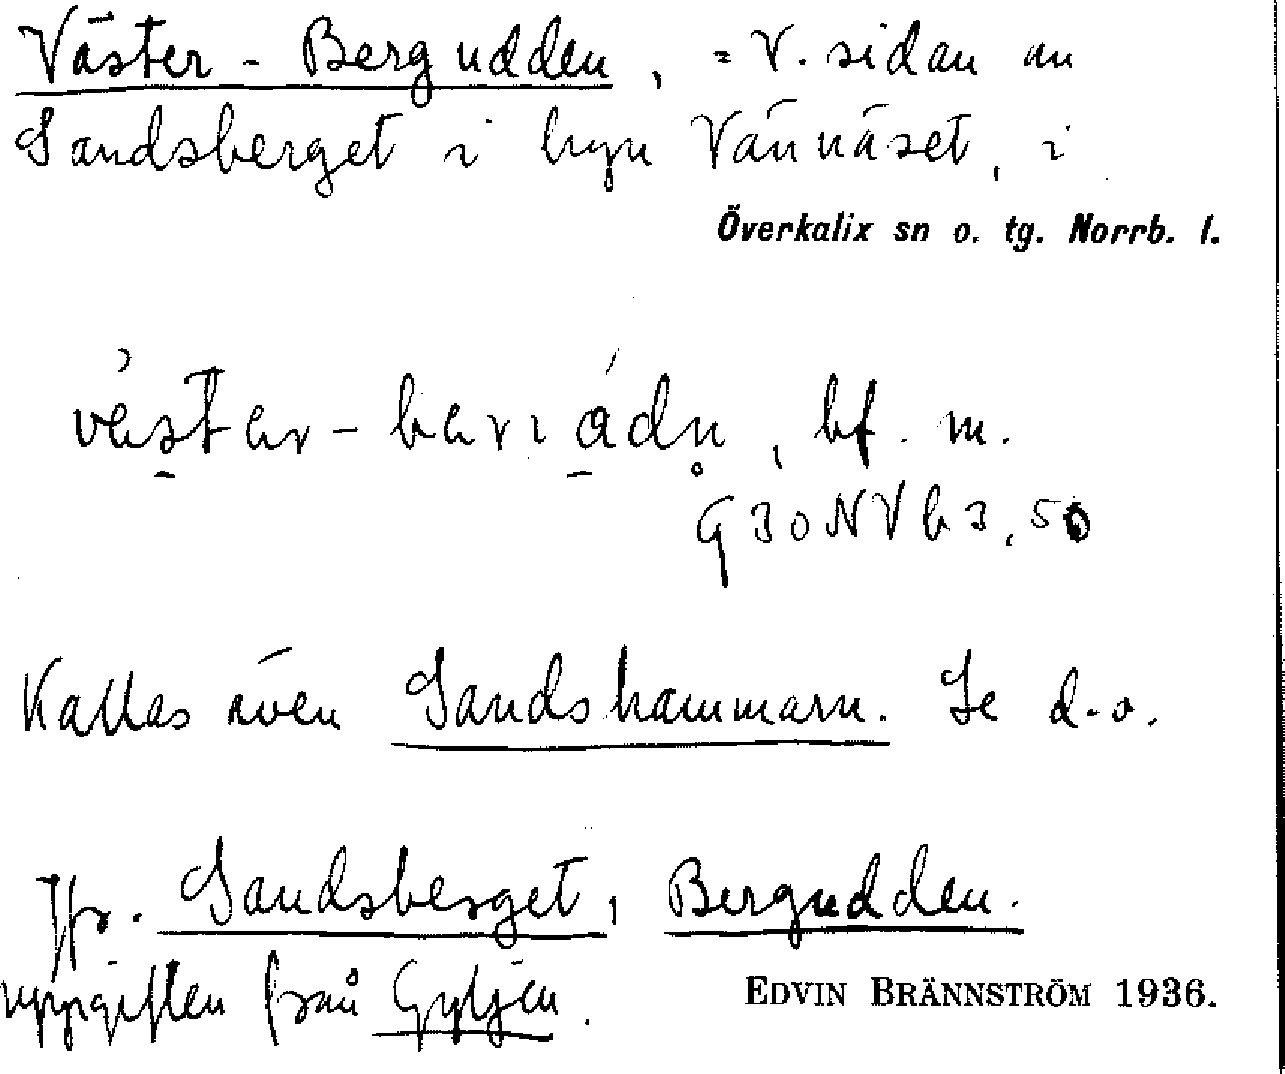 Väster-Bergudden, = V. sidan av
Sandsberget i byn Vännäset, i
Överkalix sn o. tg. Norrb. l.
västar-bärrıådn̥, bf. m.
G30NVb3,50
Kallas även Sandshammarn. Se d.o.
Jfr. Sandsberget, Bergudden.
uppgiften från Gyljen.
EDVIN BRÄNNSTRÖM 1936.